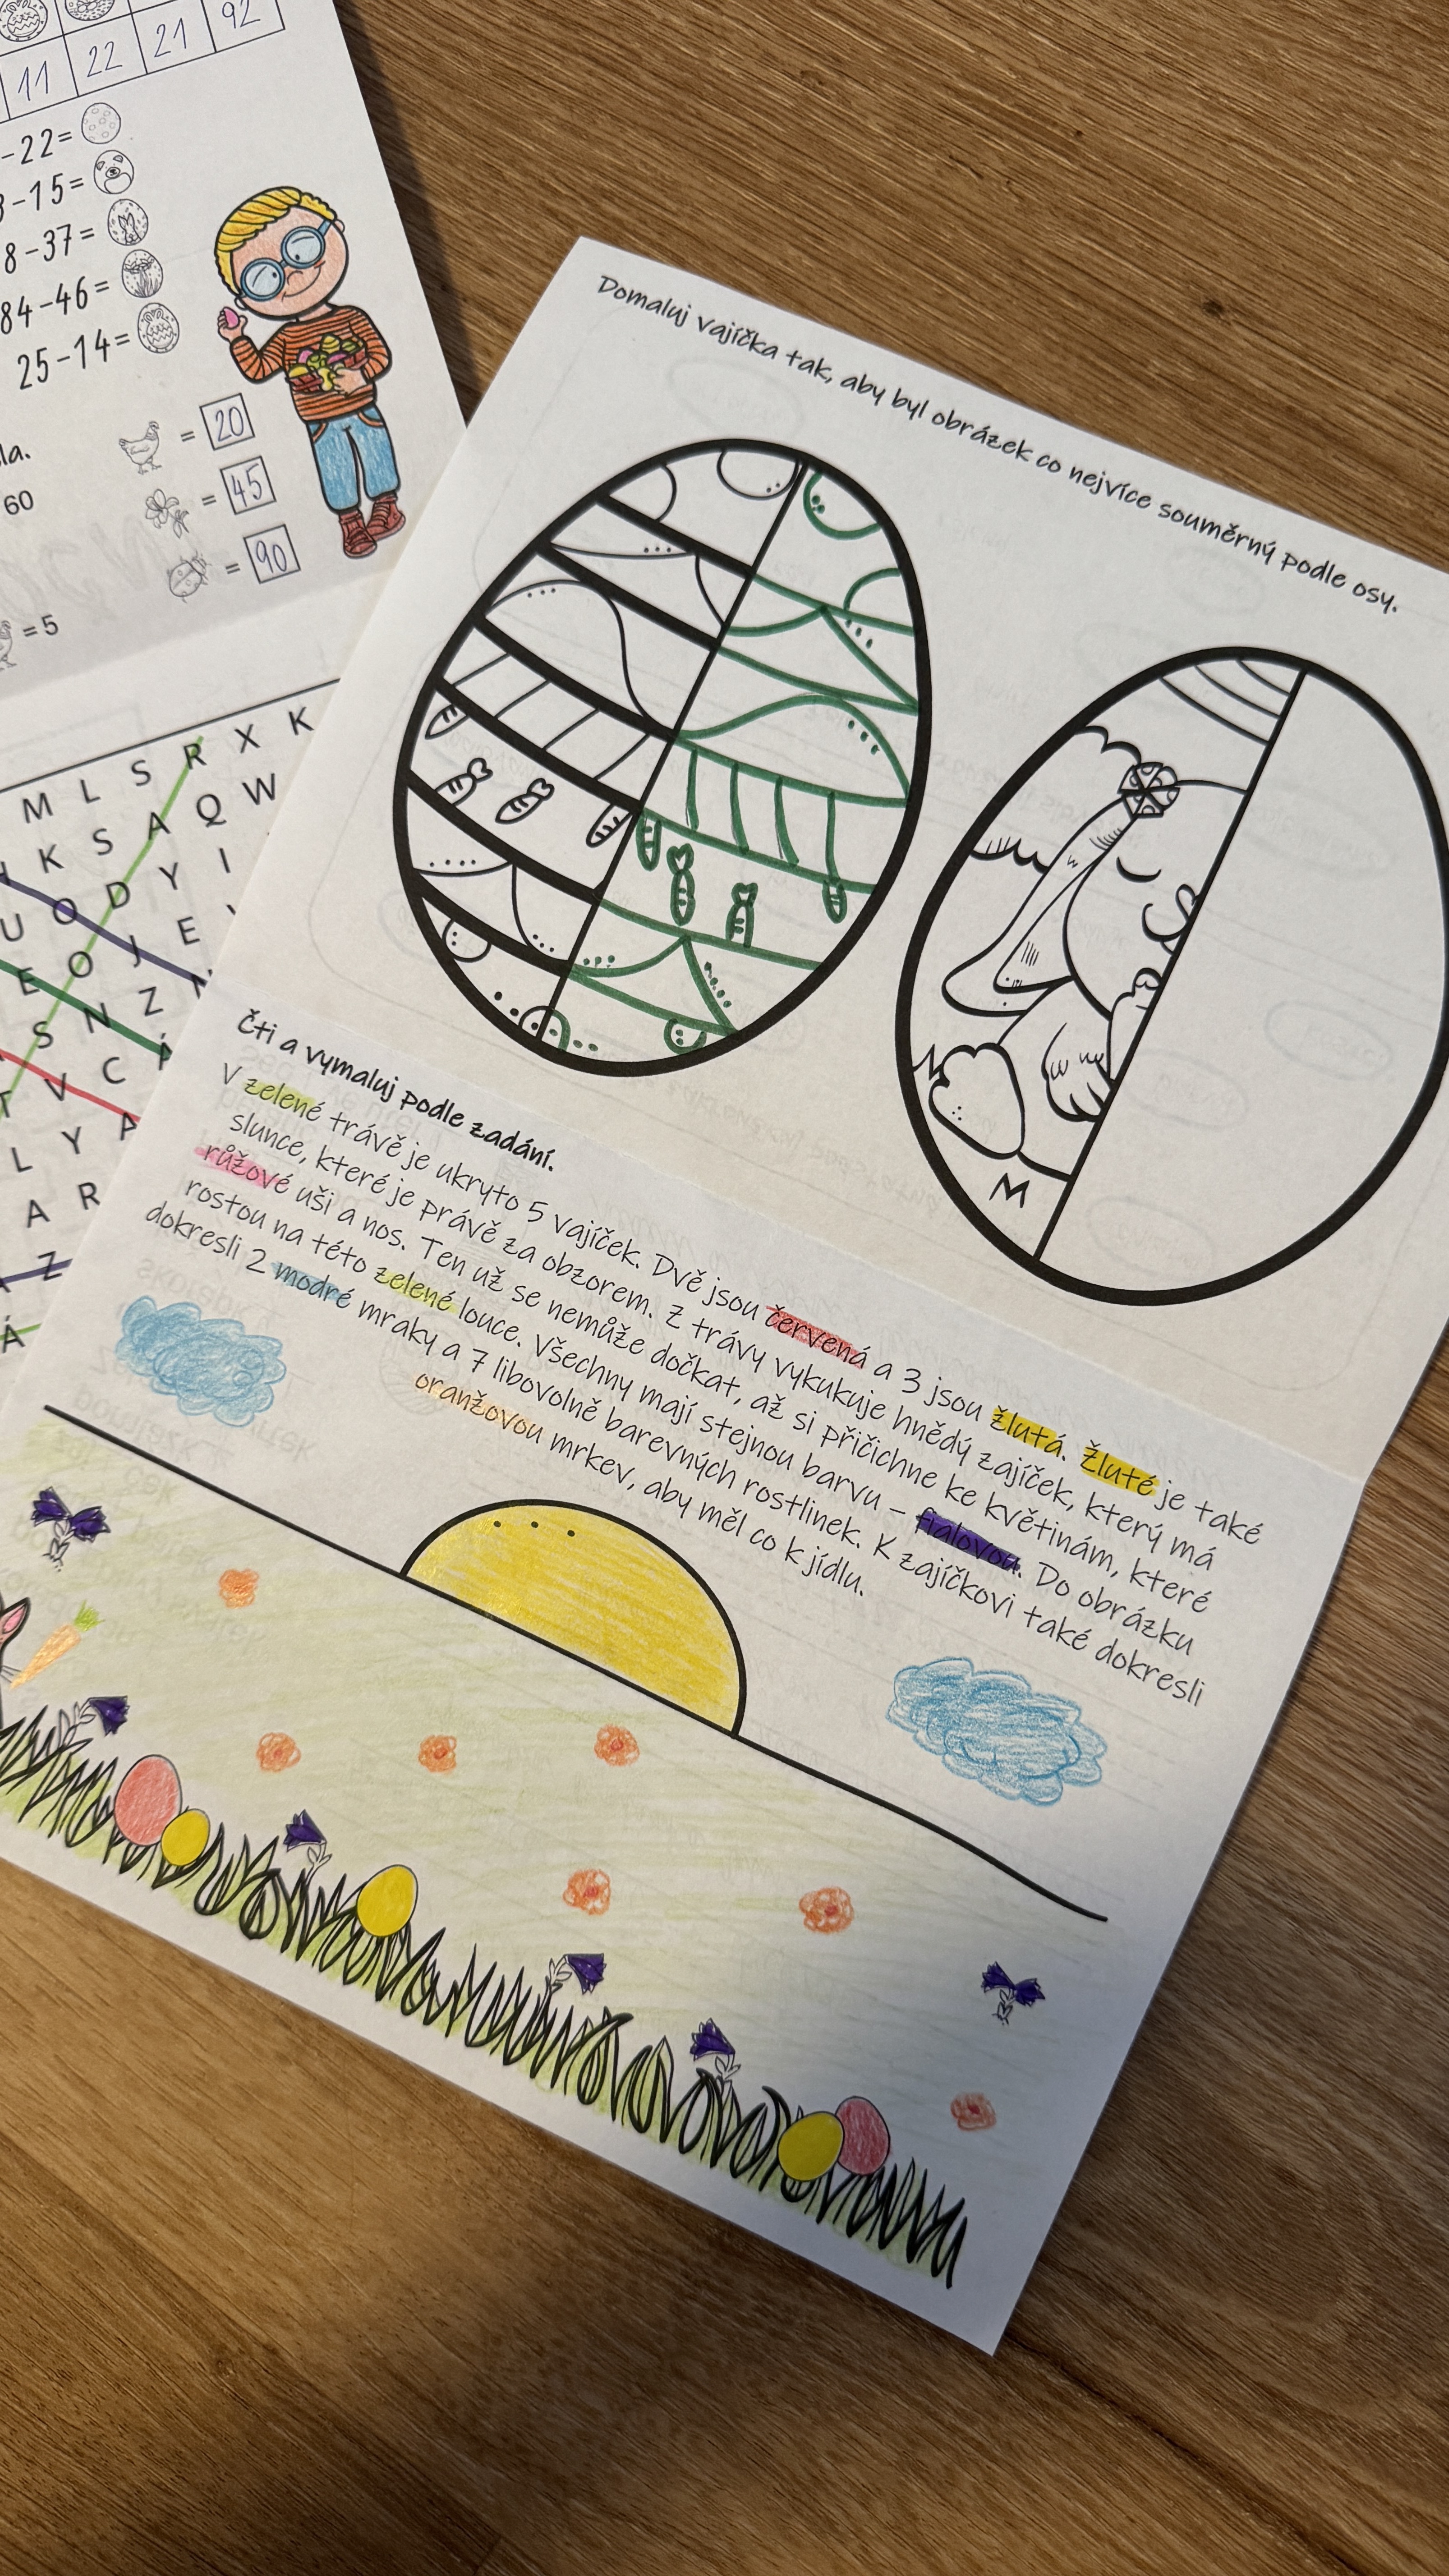 11 22 21 92
-22=
-15=
8-37=
84-46=
25-14=
= 20
60
= 45
= 90
= 5
R X K
M L S Q W
K S A I
U O D Y
E O J E
S N Z
V C Á
L Y A
A R
Z
Á
Domaluj vajíčka tak, aby byl obrázek co nejvíce souměrný podle osy.
Čti a vymaluj podle zadání.
V zelené trávě je ukryto 5 vajíček. Dvě jsou červená a 3 jsou žlutá. Žluté je také
slunce, které je právě za obzorem. Z trávy vykukuje hnědý zajíček, který má
růžové uši a nos. Ten už se nemůže dočkat, až si přičichne ke květinám, které
rostou na této zelené louce. Všechny mají stejnou barvu – fialovou. Do obrázku
dokresli 2 modré mraky a 7 libovolně barevných rostlinek. K zajíčkovi také dokresli
oranžovou mrkev, aby měl co k jídlu.